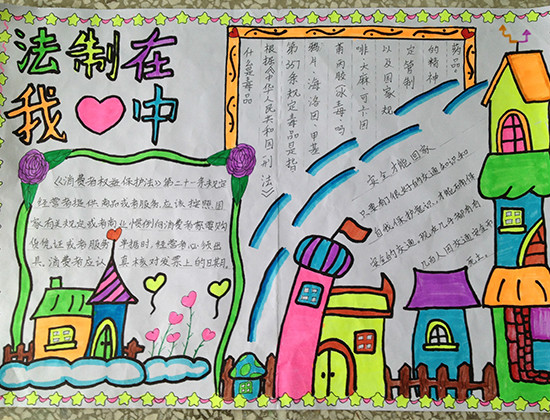 法制在
我中
《消费者权益保护法》第二十一条规定
经营者提供商品或者服务,应该按照国
家有关规定或者商业惯例向消费者索要购
货凭证或者服务单据时,经营者必须出
具。消费者应认真核对发票上的日期。
什么是毒品
根据《中华人民共和国刑法》
第357条规定毒品是指
鸦片、海洛因、甲基
苯丙胺(冰毒)、吗
啡大麻可卡因
以及国家规
定管制
的精神
药品。
安全才能回家
只要有很好的交通知识和
自我保护意识,才能有保
安全的交通,现在几乎每年有
几百人因交通安全而
死亡。